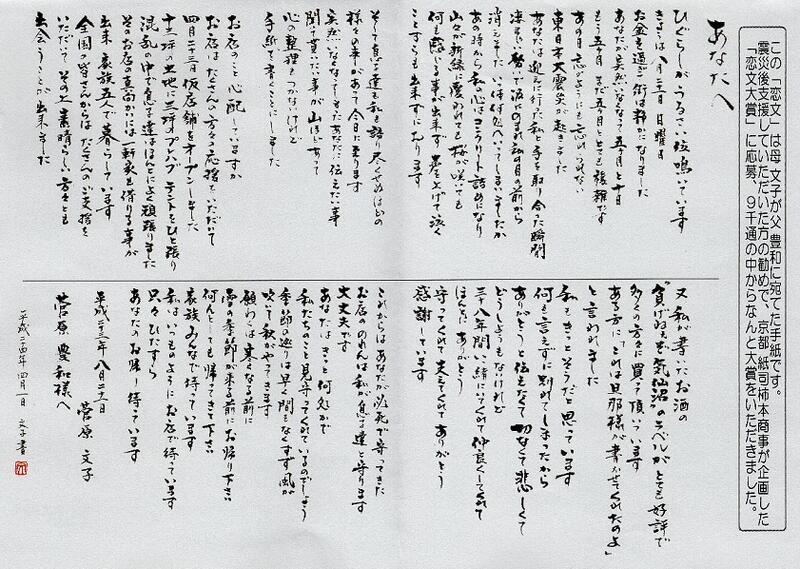 この「恋文」は母 文子が父 豊和に宛てた手紙です。
震災後支援していただいた方の勧めで、京都 紙司柿本商事が企画した
「恋文大賞」に応募、9千通の中からなんと大賞をいただきました。
あなたへ
ひぐらしがうるさい位鳴いています
きょうは八月二十一日 日曜日
お盆を過ぎ街は静かになりました
あなたが突然いなくなって五ヶ月と十日
もう五ヶ月 まだ五ヶ月ととても複雑です
あの日 忘れようにも忘れられない
東日本大震災が起きました
あなたは迎えに行った私と手を取り合った瞬間
凄まじい勢いで波にのまれ私の目の前から
消えました いったい何処へいってしまいましたか
あの時から私の心はコンクリート詰めになり
山々が新緑に覆われても桜が咲いても
何も感じる事が出来ず 空を見上げて泣く
ことすらも出来ずにおります
そして息子達も私も語り尽くせぬほどの
様々な事があって今日に至ります
突然いなくなってしまったあなたに伝えたい事
聞いて貰いたい事が山ほどあって
心の整理もつかないけれど
手紙を書くことにしました
お店のこと心配していますか
お店はたくさんの方々の応援をいただいて
四月二十三日 仮店舗をオープンしました
十三坪の土地に三坪のプレハブ テントをひと張り
混乱の中で息子達はほんとによく頑張りました
そのお店の真向かいには一軒家も借りる事が
出来 家族五人で暮らしています
全国の皆さんからはたくさんのご支援を
いただいて その上素晴らしい方々とも
出会うことが出来ました
又 私が書いたお酒の
“負げねえぞ気仙沼”のラベルがとても好評で
多くの方々に買って頂いています
ある方に「これは旦那様が書かせてくれたのよ」
と言われました
私もきっとそうだと思っています
何も言えずに別れてしまったから
ありがとうと伝えたくて 切なくて悲しくて
どうしようもないけれど
三十八年間 一緒にいてくれて仲良くしてくれて
ほんとにありがとう
守ってくれて支えてくれてありがとう
感謝しています
これからはあなたが必死で守ってきた
お店ののれんは私が息子達と守ります
大丈夫です
あなたはきっと何処かで
私たちのこと見守ってくれているのでしょう
季節の巡りは早く 間もなくすず風が
吹いて秋がやってきます
願わくは寒くなる前に
雪の季節が来る前にお帰り下さい
何としても帰ってきて下さい
家族みんなで待っています
私はいつものようにお店で待っています
只々ひたすら
あなたのお帰りを待っています
平成二十三年 八月二十一日
菅原 文子
菅原 豊和様へ
平成二四年四月一日 文子書